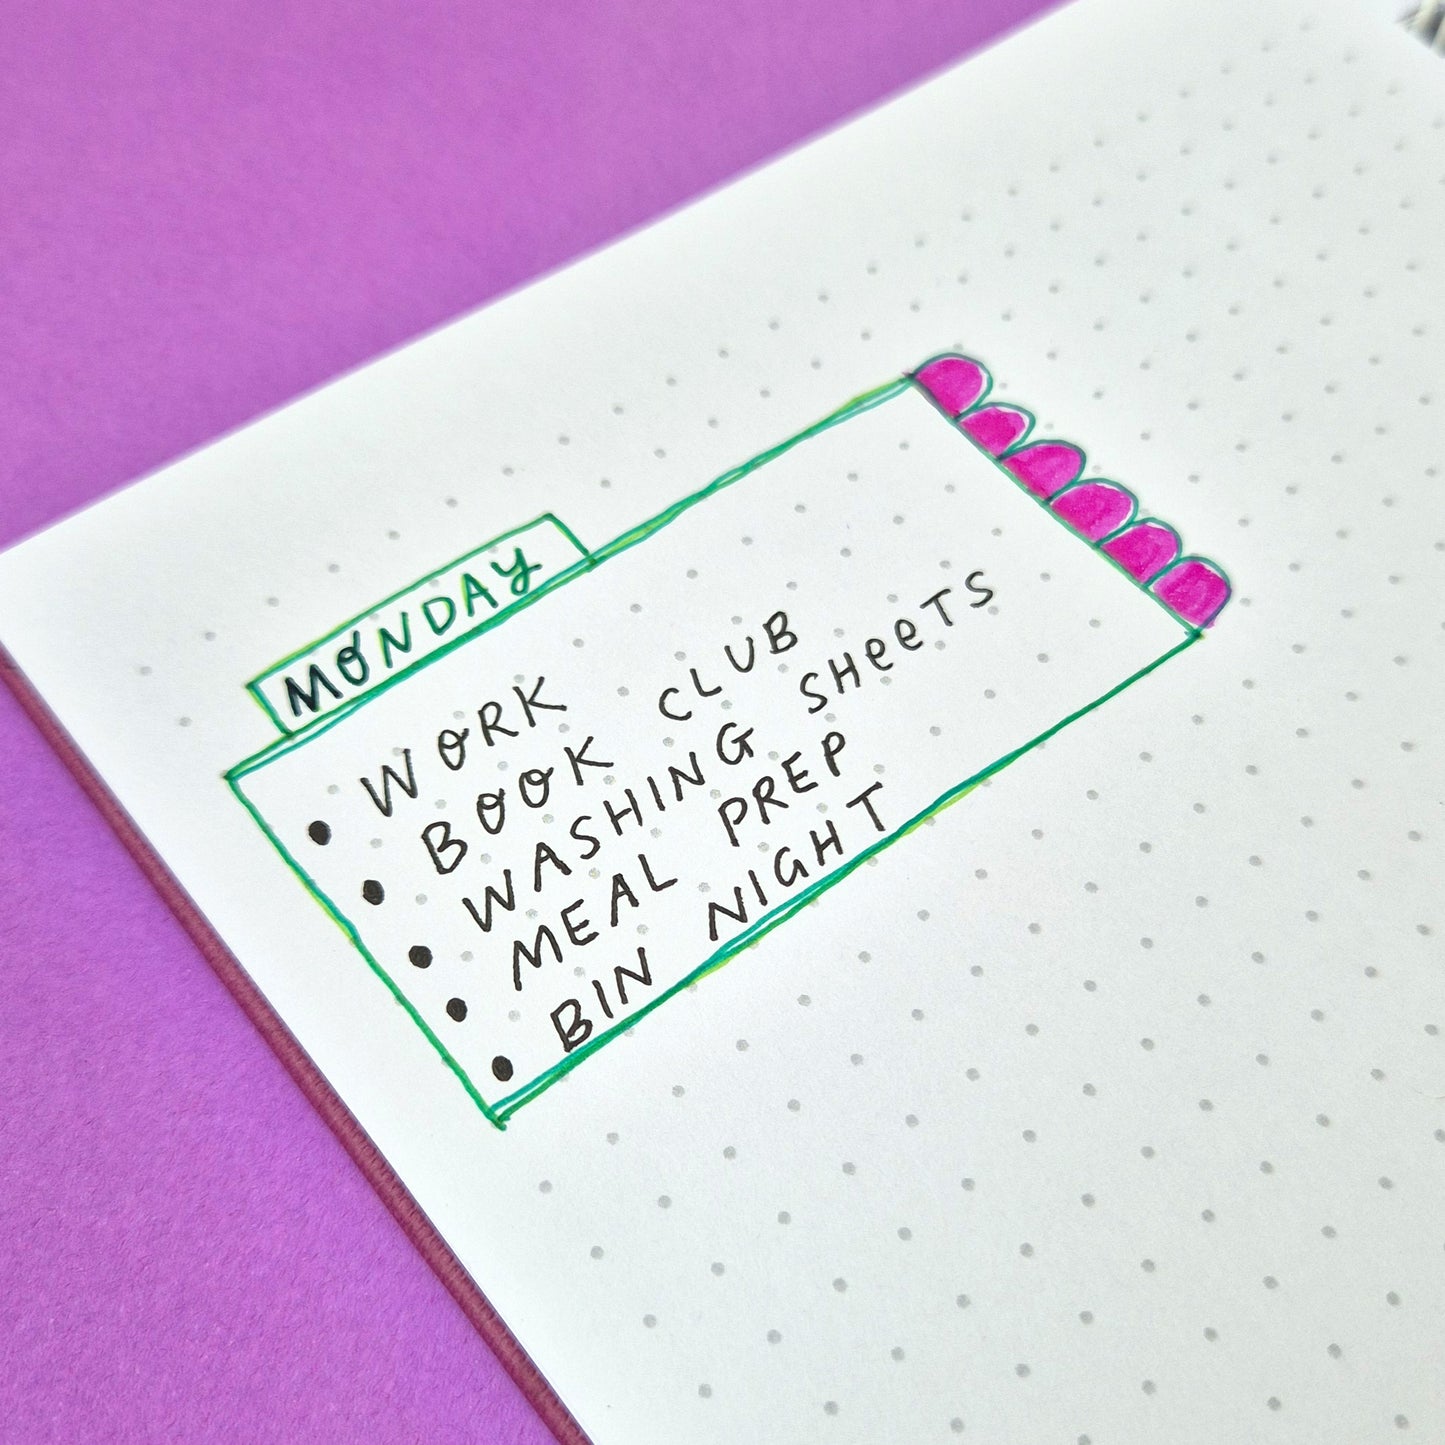 MONDAY
• WORK
• BOOK CLUB
• WASHING SHeeTS
• MEAL PREP
• BIN NIGHT